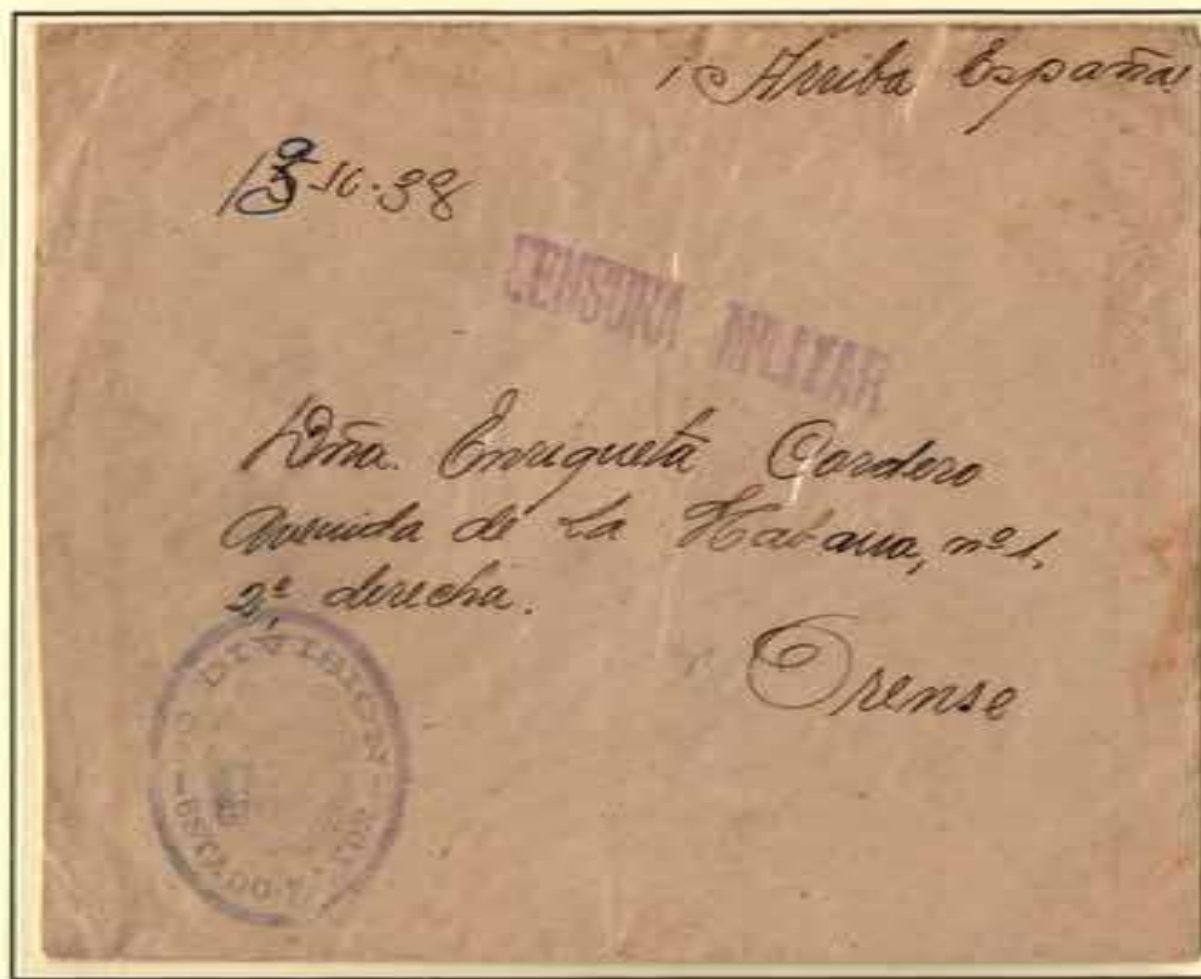 ¡Arriba España!
-38
CENSURA MILITAR
Dña. Enriqueta Cordero
Avenida de la Habana, nº 1,
2º derecha.
Orense
DIVISION
ESTADO